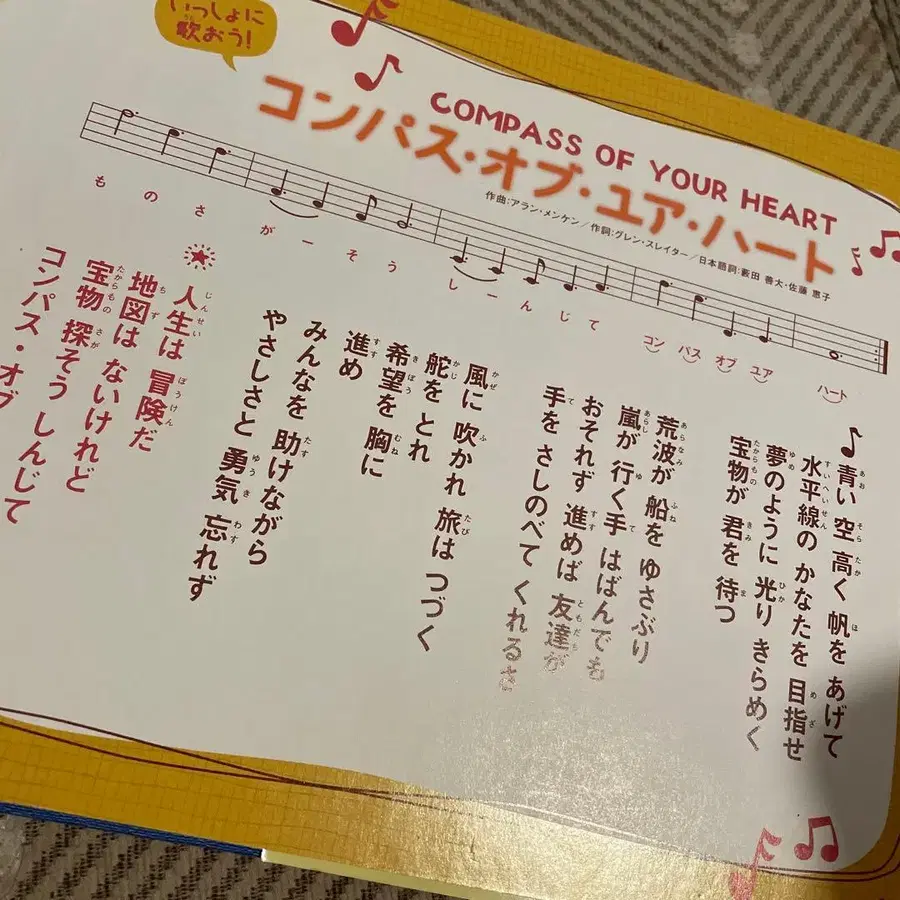 いっしょに
歌おう!
COMPASS OF YOUR HEART
コンパス・オブ・ユア・ハート
作曲:アラン・メンケン/作詞:グレン・スレイター/日本語詞:薮田 善大・佐藤 恵子
ものさがーそう しーんじて コン パス オブ ユア ハート
青い 空 高く 帆を あげて
水平線の かなたを 目指せ
夢のように 光り きらめく
宝物が 君を 待つ
荒波が 船を ゆさぶり
嵐が 行く手 はばんでも
おそれず 進めば 友達が
手を さしのべて くれるさ
風に 吹かれ 旅は つづく
舵を とれ
希望を 胸に
進め
みんなを 助けながら
やさしさと 勇気 忘れず
人生は 冒険だ
地図は ないけれど
宝物 探そう しんじて
コンパス・オブ